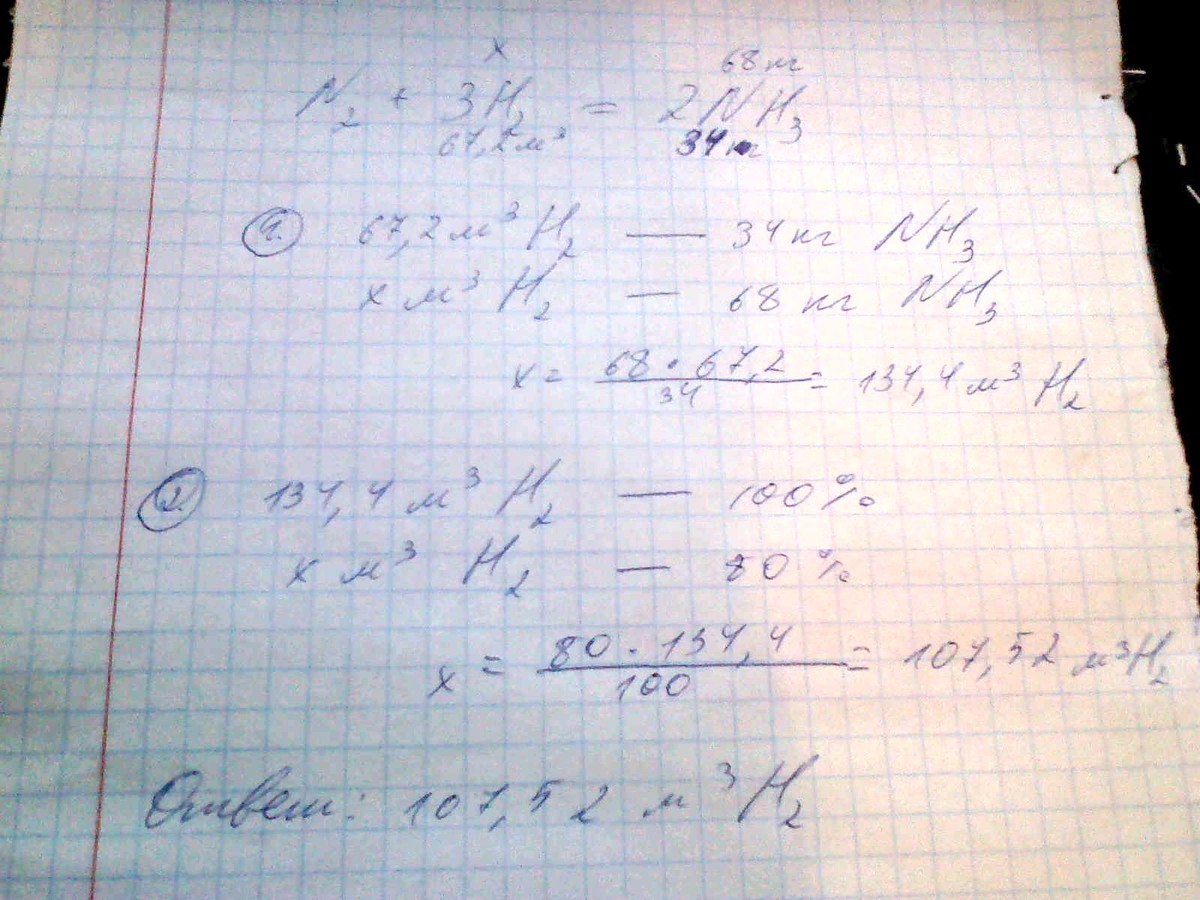 x 68 кг
N₂ + 3H₂ = 2NH₃
67,2 м³ 34 кг
1. 67,2 м³ H₂ — 34 кг NH₃
x м³ H₂ — 68 кг NH₃
x = 68 · 67,2 / 34 = 134,4 м³ H₂
2. 134,4 м³ H₂ — 100%
x м³ H₂ — 80%
x = 80 · 134,4 / 100 = 107,52 м³ H₂
Ответ: 107,52 м³ H₂